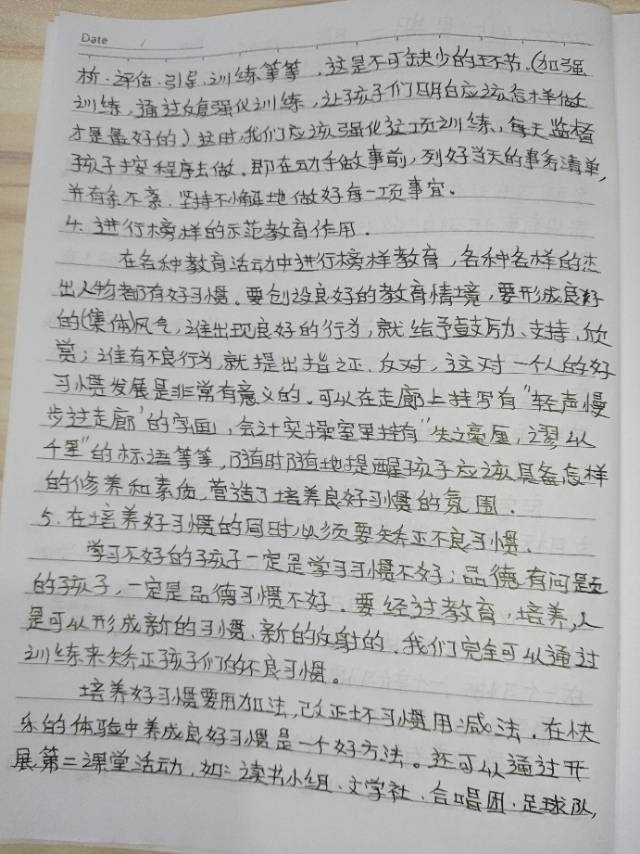 Date
析、评估、引导、训练等等，这是不可缺少的环节。(加强
训练，通过反复强化训练，让孩子们明白应该怎样做
才是最好的）这时，我们应该强化这项训练，每天监督
孩子按程序去做。即在动手做事前，列好当天的事务清单，
并有条不紊，坚持不懈地做好每一项事宜。
4. 进行榜样的示范教育作用.
在各种教育活动中进行榜样教育，各种各样的杰
出人物都有好习惯。要创设良好的教育情境，要形成良好
的(集体)风气，谁出现良好的行为，就给予鼓励、支持，欣
赏；谁有不良行为，就提出指正、反对，这对一个人的好
习惯发展是非常有意义的。可以在走廊上挂写有“轻声慢
步过走廊’的字画，会计实操室里挂有“失之毫厘，谬以
千里”的标语等等，随时随地提醒孩子应该具备怎样
的修养和素质，营造了培养良好习惯的氛围.
5. 在培养好习惯的同时必须要矫正不良习惯.
学习不好的孩子一定是学习习惯不好；品德有问题
的孩子，一定是品德习惯不好。要经过教育，培养，人
是可以形成新的习惯、新的反射的。我们完全可以通过
训练来矫正孩子们的不良习惯。
培养好习惯要用加法，改正坏习惯用减法。在快
乐的体验中养成良好习惯是一个好方法。还可以通过开
展第二课堂活动，如：读书小组、文学社、合唱团、足球队，